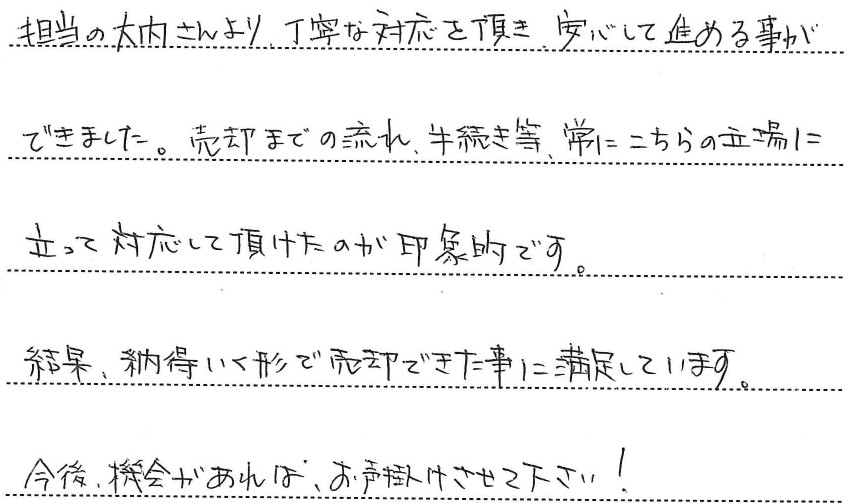 担当の大内さんより、丁寧な対応を頂き、安心して進める事が
できました。売却までの流れ、手続き等、常にこちらの立場に
立って対応して頂けたのが印象的です。
結果、納得いく形で売却できた事に満足しています。
今後、機会があれば、お声掛けさせて下さい！